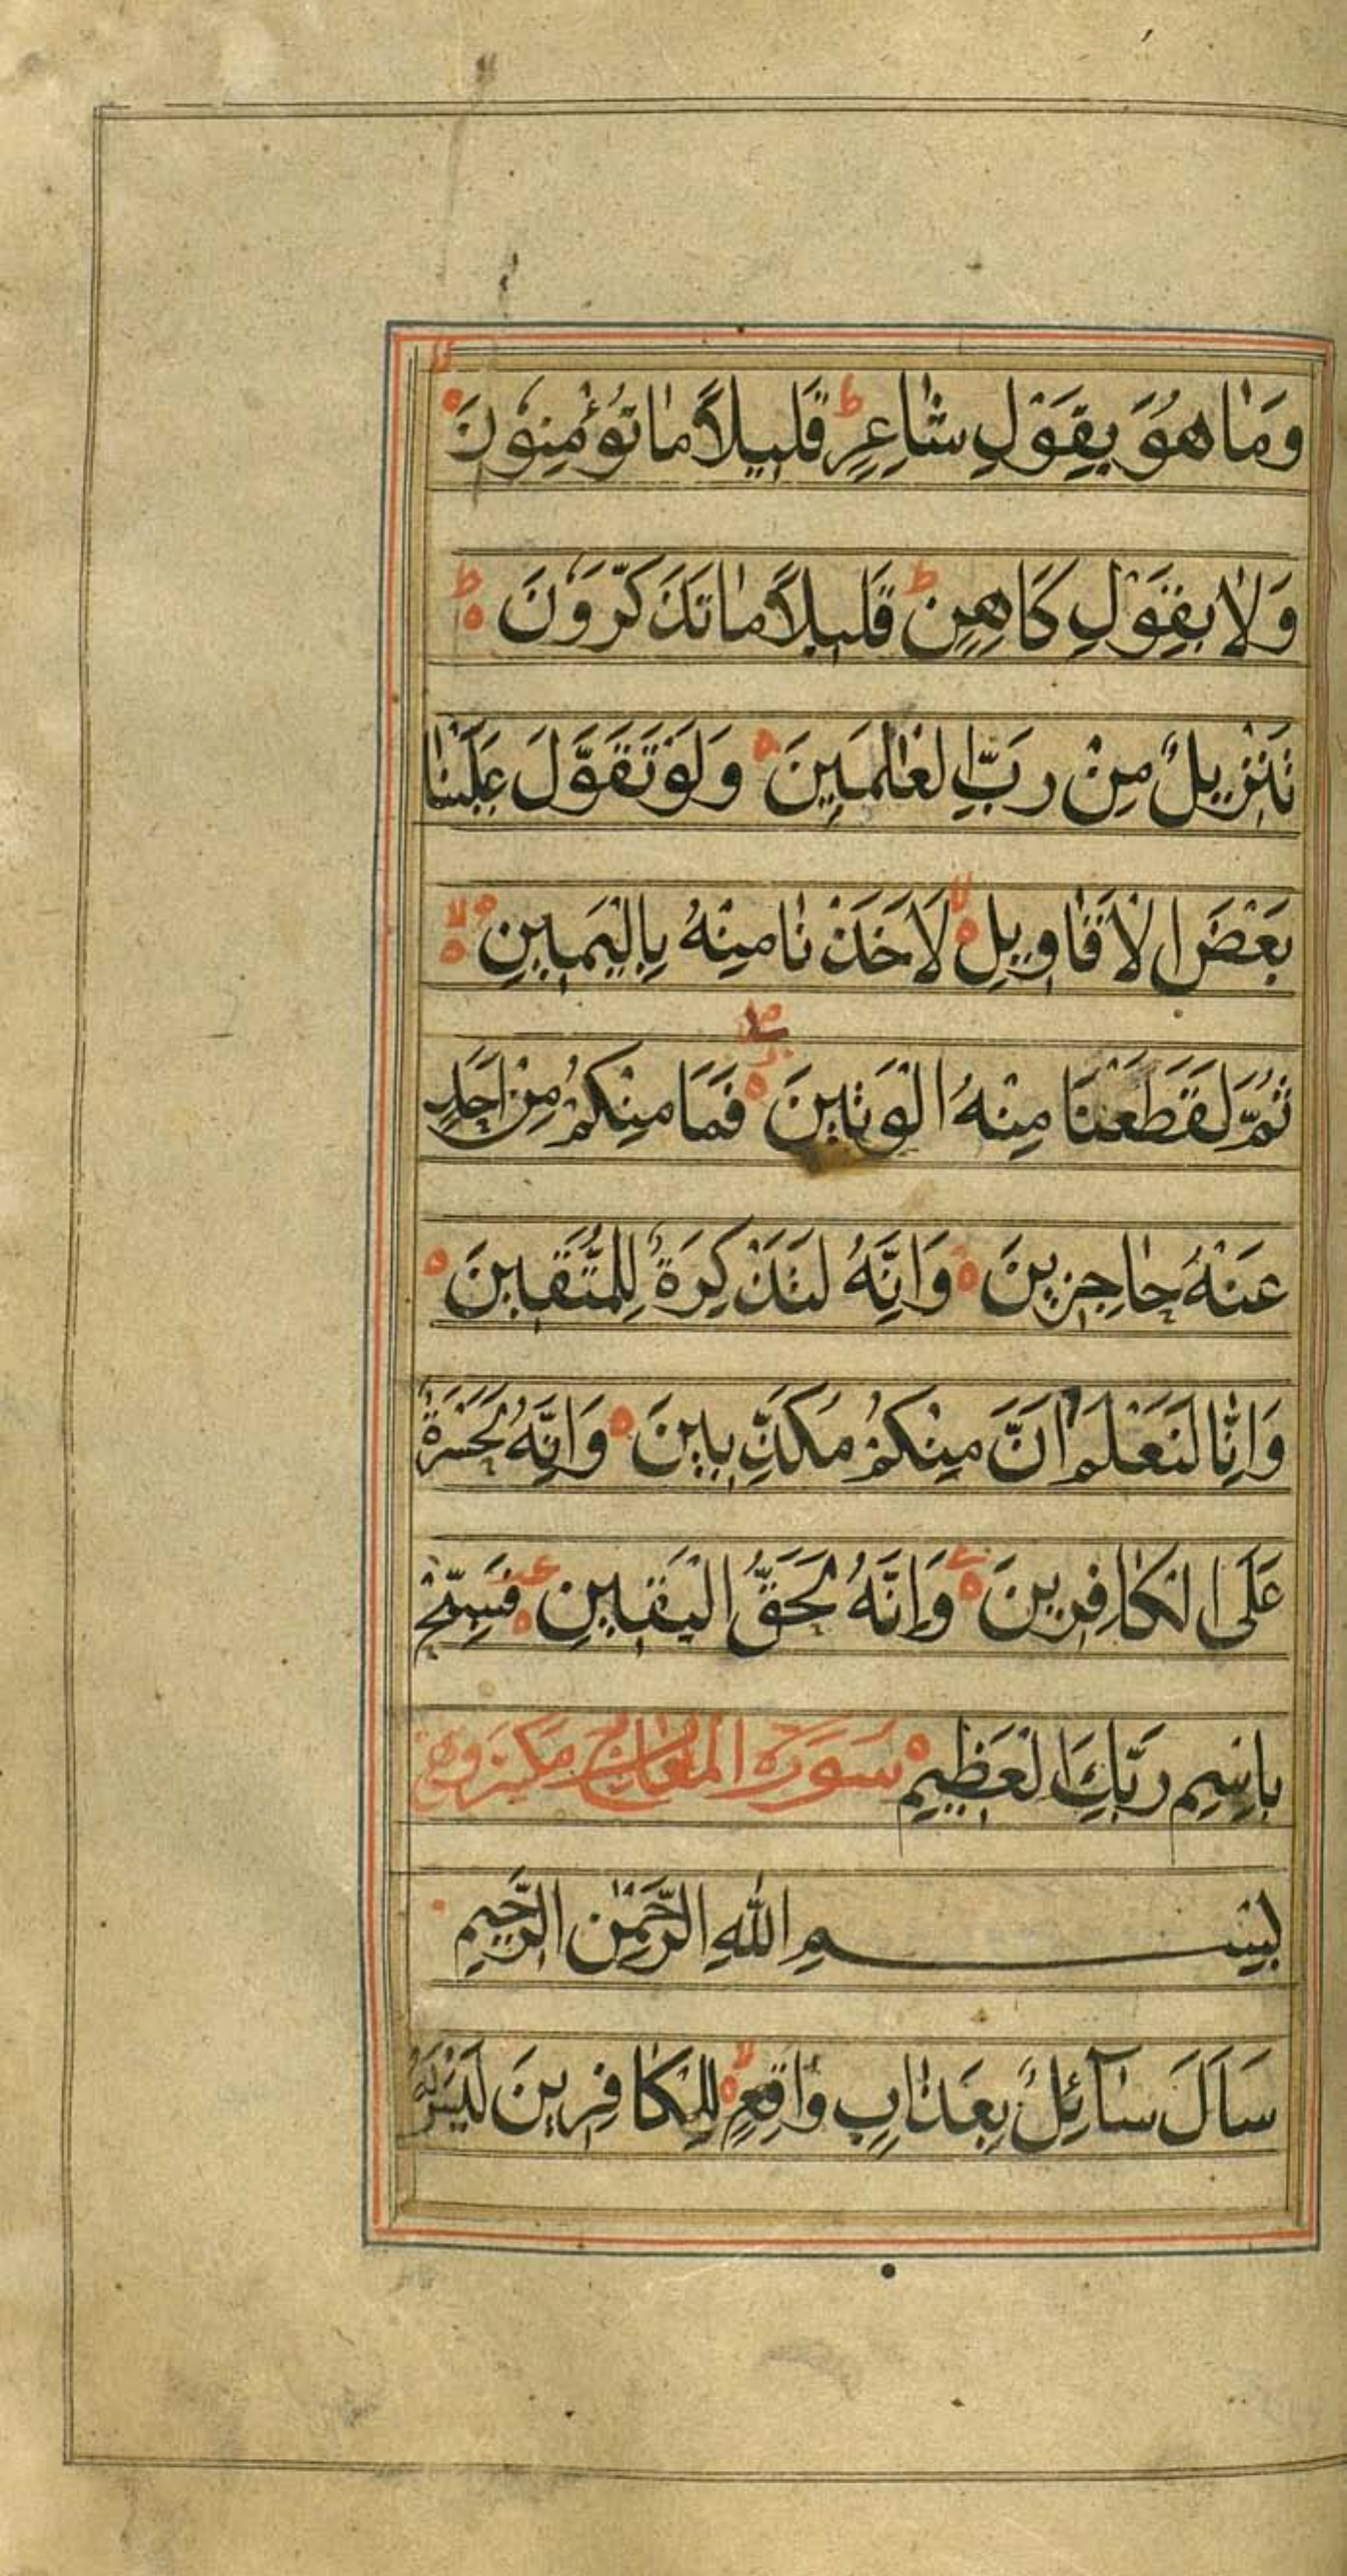 وَمَا هُوَ بِقَوْلِ شَاعِرٍ ط قَلِيلًا مَا تُؤْمِنُونَ لا
وَلَا بِقَوْلِ كَاهِنٍ ط قَلِيلًا مَا تَذَكَّرُونَ ط
تَنْزِيلٌ مِنْ رَبِّ الْعَالَمِينَ وَلَوْ تَقَوَّلَ عَلَيْنَا
بَعْضَ الْأَقَاوِيلِ لا لَأَخَذْنَا مِنْهُ بِالْيَمِينِ لا
ثُمَّ لَقَطَعْنَا مِنْهُ الْوَتِينَ فَمَا مِنْكُمْ مِنْ اَحَدٍ
عَنْهُ حَاجِزِينَ وَاِنَّهُ لَتَذْكِرَةٌ لِلْمُتَّقِينَ
وَاِنَّا لَنَعْلَمُ اَنَّ مِنْكُمْ مُكَذِّبِينَ وَاِنَّهُ لَحَسْرَةٌ
عَلَى الْكَافِرِينَ وَاِنَّهُ لَحَقُّ الْيَقِينِ فَسَبِّحْ
بِاسْمِ رَبِّكَ الْعَظِيمِ سورة المعارج مكية وهى
بِسْمِ اللهِ الرَّحْمٰنِ الرَّحِيمِ
سَاَلَ سَآئِلٌ بِعَذَابٍ وَاقِعٍ لا لِلْكَافِرِينَ لَيْسَ لَهُ